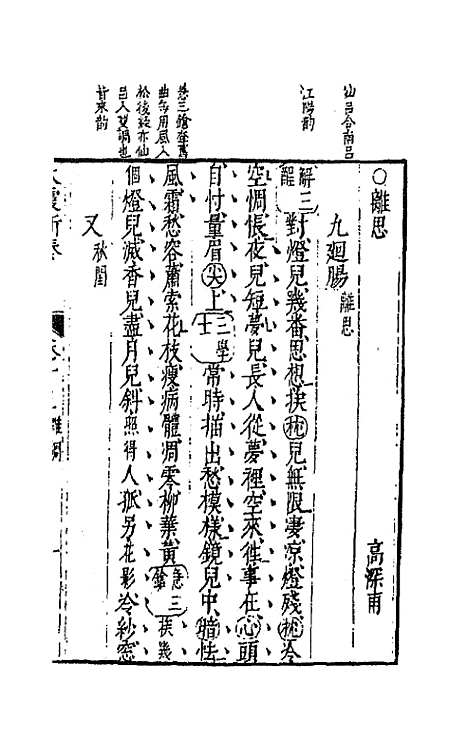 仙呂合南呂
江陽韻
急三鎗查舊
曲每用風入
松後殺亦仙
呂入雙調也
甘來韵
○離思
九迴腸 離思
高深甫
解三酲 對燈兒幾番思想挨枕兒無限凄凉燈殘枕冷
空惆悵夜兒短夢兒長人從夢裡空來往事在心頭
自忖量眉尖上 三學士 常時描出愁模樣鏡兒中暗怯
風霜愁容蕭索花枝瘦病體凋零柳葉黃 急三鎗 挨幾
個燈兒滅香兒盡月兒斜照得人孤另花影冷紗窓
又 秋閨